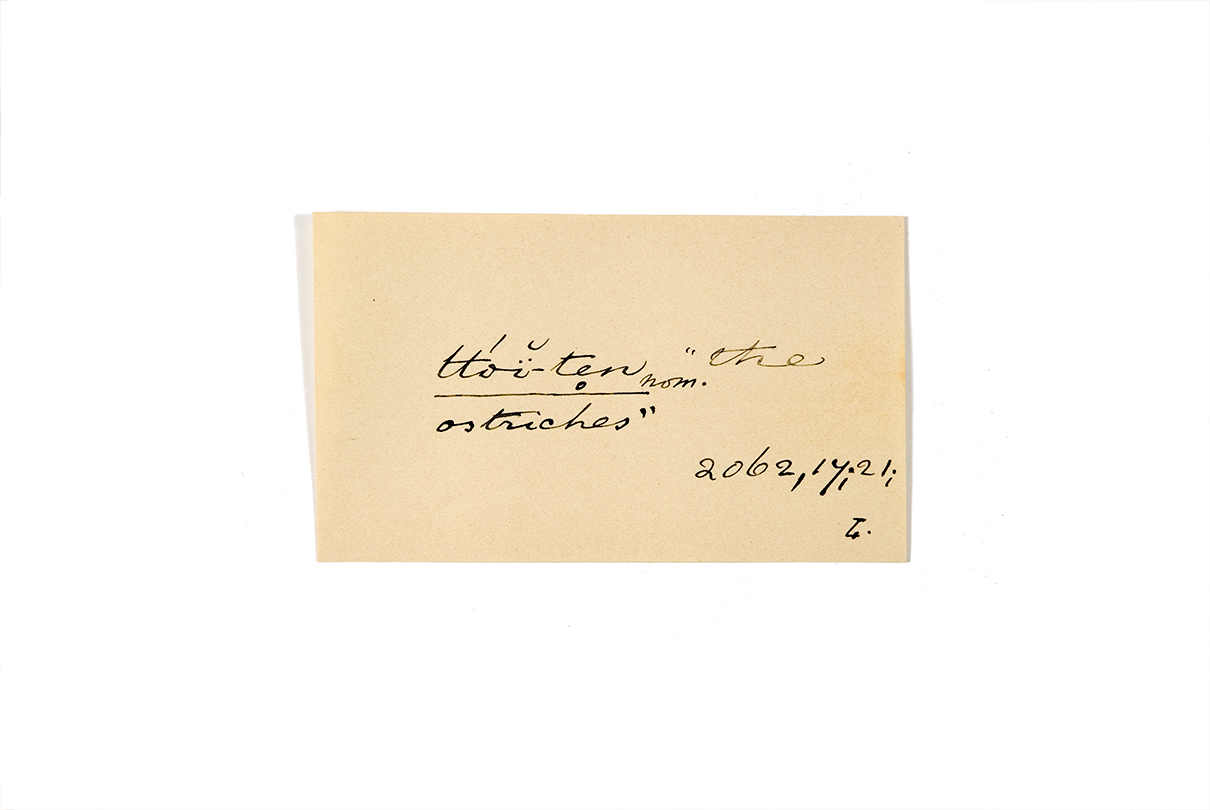 ttóï̆-te̥n nom. "the
ostriches"
2062, 17; 21;